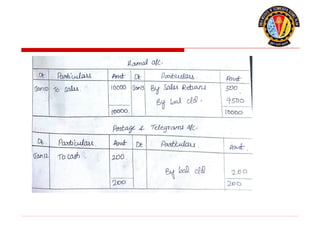 Kamal a/c.
Dt Particulars Amt Dt Particulars Amt
Jan10 To Sales. 10000 Jan13 By Sales Returns 500
By bal c/d. 9500
10000 10000
Postage & Telegrams a/c.
Dt Particulars Amt Dt Particulars Amt.
Jan12 To cash 200
By bal c/d 200
200 200